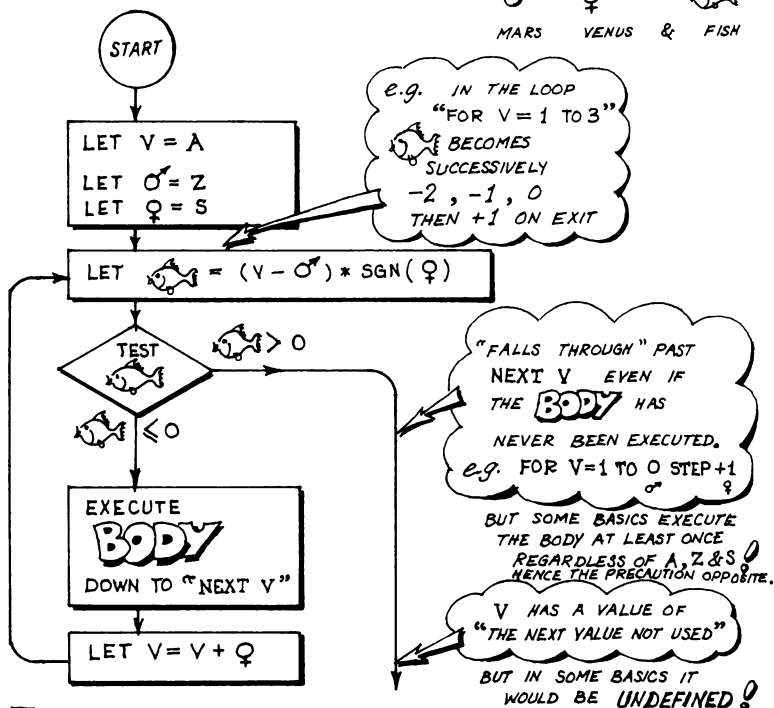 MARS VENUS & FISH
START
LET V = A
LET ♂ = Z
LET ♀ = S
e.g. IN THE LOOP
"FOR V = 1 TO 3"
BECOMES
SUCCESSIVELY
-2 , -1 , 0
THEN +1 ON EXIT
LET = (V - ♂) * SGN(♀)
TEST
> 0
≤ 0
"FALLS THROUGH" PAST
NEXT V EVEN IF
THE BODY HAS
NEVER BEEN EXECUTED.
e.g. FOR V=1 TO 0 STEP+1
♂ ♀
EXECUTE
BODY
DOWN TO "NEXT V"
BUT SOME BASICS EXECUTE
THE BODY AT LEAST ONCE
REGARDLESS OF A, Z & S!
HENCE THE PRECAUTION OPPOSITE.
LET V = V + ♀
V HAS A VALUE OF
"THE NEXT VALUE NOT USED"
BUT IN SOME BASICS IT
WOULD BE UNDEFINED!